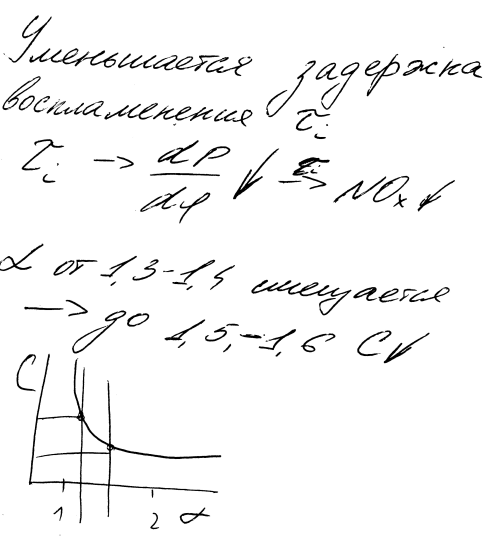 Уменьшается задержка
воспламенения τi
τi → dP/dφ ↓ → NOx ↓
α от 1,3-1,4 смещается
→ до 1,5,-1,6 C↓
C
1 2 α